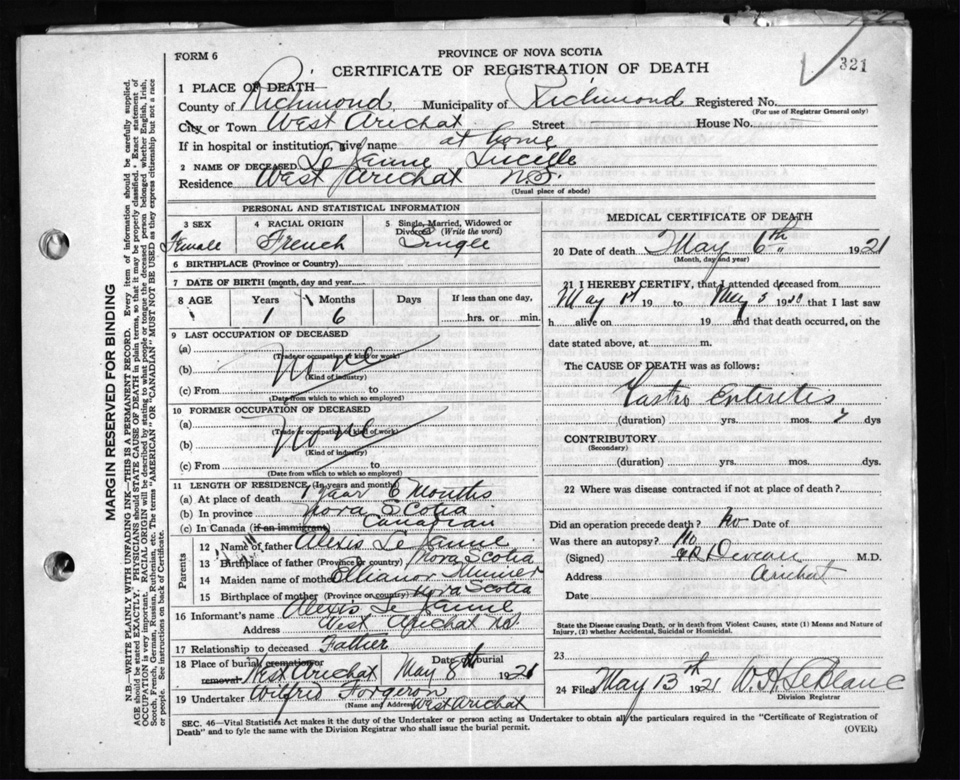 321
FORM 6
PROVINCE OF NOVA SCOTIA
CERTIFICATE OF REGISTRATION OF DEATH
1 PLACE OF DEATH
County of Richmond, Municipality of Richmond Registered No.
(For use of Registrar General only)
City or Town West Arichat Street House No.
If in hospital or institution, give name at home
2 NAME OF DECEASED Le Jeune Lucille
Residence West Arichat N.S.
(Usual place of abode)
PERSONAL AND STATISTICAL INFORMATION
3 SEX 4 RACIAL ORIGIN 5 Single, Married, Widowed or Divorced (Write the word)
Female French Single
6 BIRTHPLACE (Province or Country)
7 DATE OF BIRTH (month, day and year)
8 AGE Years Months Days If less than one day,
1 6 hrs. or min.
9 LAST OCCUPATION OF DECEASED
(a)
(Trade or occupation of kind or work)
(b) None
(Kind of industry)
(c) From to
(Date from which to which so employed)
10 FORMER OCCUPATION OF DECEASED
(a)
(Trade or occupation and kind of work)
(b) None
(Kind of industry)
(c) From to
(Date from which to which so employed)
11 LENGTH OF RESIDENCE (In years and months)
(a) At place of death 1 year 6 Months
(b) In province Nova Scotia
(c) In Canada (if an immigrant) Canadian
Parents
12 Name of father Alexis Le Jeune
13 Birthplace of father (Province or country) Nova Scotia
14 Maiden name of mother
15 Birthplace of mother (Province or country) Nova Scotia
16 Informant's name Alexis Le Jeune
Address West Arichat N.S.
17 Relationship to deceased Father
18 Place of burial cremation or removal Date of burial
West Arichat May 8th 1921
19 Undertaker Wilfrid Forgeron
(Name and Address) West Arichat
MEDICAL CERTIFICATE OF DEATH
20 Date of death May 6th 1921
(Month, day and year)
21 I HEREBY CERTIFY, that I attended deceased from
May 19 to May 19 that I last saw
h alive on 19 and that death occurred, on the
date stated above, at m.
The CAUSE OF DEATH was as follows:
Gastro Enteritis
(duration) yrs. mos. 7 dys
CONTRIBUTORY
(Secondary)
(duration) yrs. mos. dys.
22 Where was disease contracted if not at place of death?
Did an operation precede death? No Date of
Was there an autopsy? No
(Signed) Deveau M.D.
Address Arichat
Date
State the Disease causing Death, or in death from Violent Causes, state (1) Means and Nature of Injury, (2) whether Accidental, Suicidal or Homicidal.
23
24 Filed May 13th 1921 W. H. LeBlanc
Division Registrar
SEC. 46—Vital Statistics Act makes it the duty of the Undertaker or person acting as Undertaker to obtain all the particulars required in the "Certificate of Registration of
Death" and to fyle the same with the Division Registrar who shall issue the burial permit.
(OVER)
MARGIN RESERVED FOR BINDING
N.B.—WRITE PLAINLY WITH UNFADING INK—THIS IS A PERMANENT RECORD. Every item of information should be carefully supplied.
AGE should be stated EXACTLY. PHYSICIANS should STATE CAUSE OF DEATH in plain terms, so that it may be properly classified. Exact statement of
OCCUPATION is very important. RACIAL ORIGIN will be described by stating to what people or tongue the deceased person belonged whether English, Irish,
Scotch, French, German, Russian, Ruthenian, etc. The terms "AMERICAN" OR "CANADIAN" MUST NOT BE USED as they express citizenship but not a race
or people. See instructions on back of Certificate.